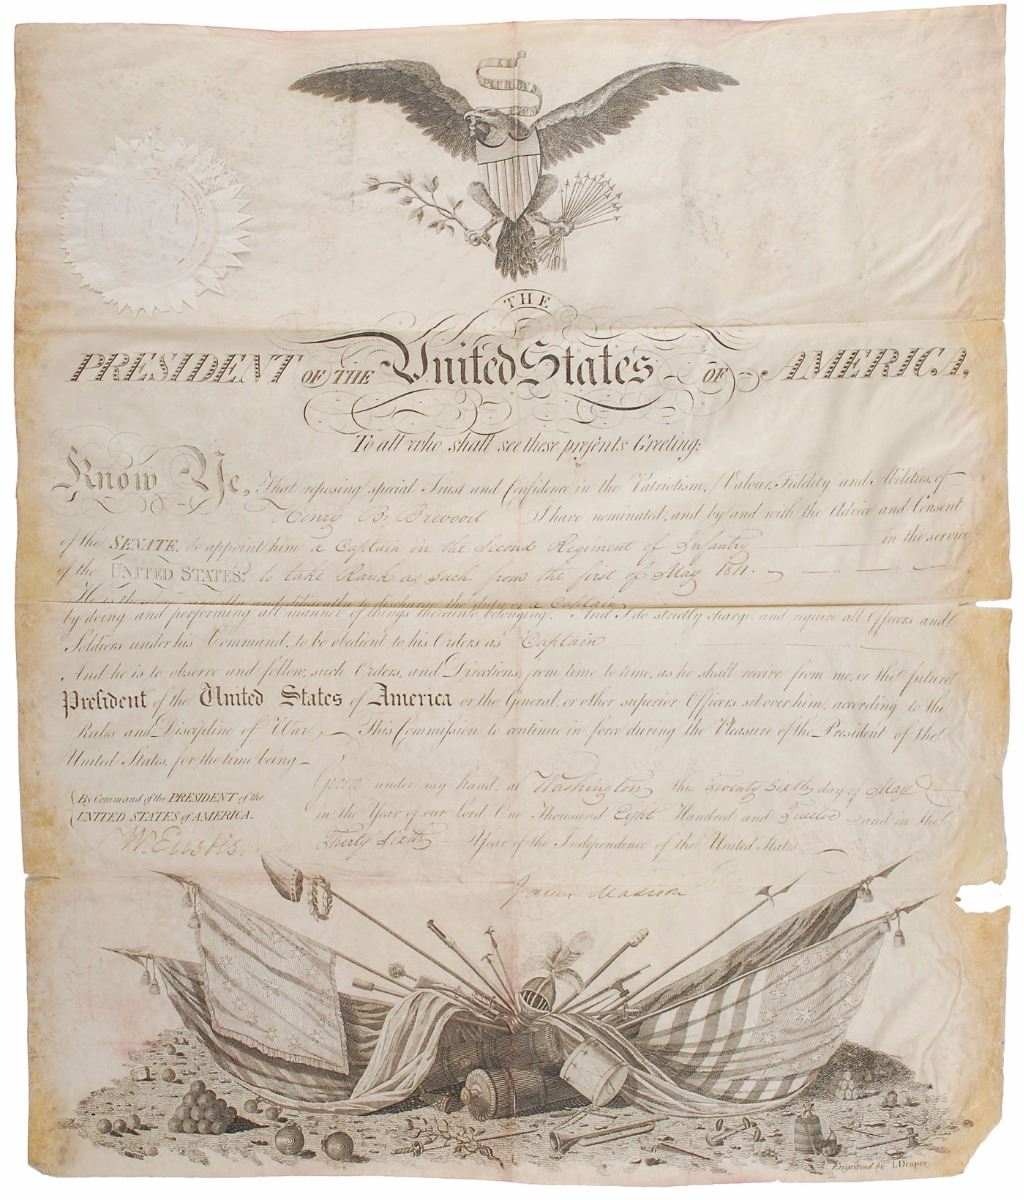 E
PLURIBUS
UNUM
THE
PRESIDENT OF THE United States OF AMERICA.
To all who shall see these presents Greeting:
Know Ye, That reposing special Trust and Confidence in the Patriotism, Valour, Fidelity and Abilities of
Henry B. Brevoort I have nominated, and by and with the Advice and Consent
of the SENATE, do appoint him a Captain in the Second Regiment of Infantry in the service
of the UNITED STATES: to take Rank as such from the first of May 1811.
He is therefore carefully and diligently to discharge the duty of a Captain
by doing and performing all manner of things thereunto belonging. And I do strictly charge, and require all Officers and
Soldiers under his Command, to be obedient to his Orders as Captain
And he is to observe and follow such Orders, and Directions, from time to time, as he shall receive from me, or the future
President of the United States of America or the General, or other superior Officers set over him, according to the
Rules and Discipline of War, This Commission to continue in force during the Pleasure of the President of the
United States, for the time being
Given under my hand, at Washington this Twenty Sixth day of May
By Command of the PRESIDENT of the
UNITED STATES of AMERICA.
in the Year of our Lord One Thousand Eight Hundred and Twelve and in the
W. Eustis.
Thirty Sixth Year of the Independence of the United States
James Madison
Engraved by I. Draper